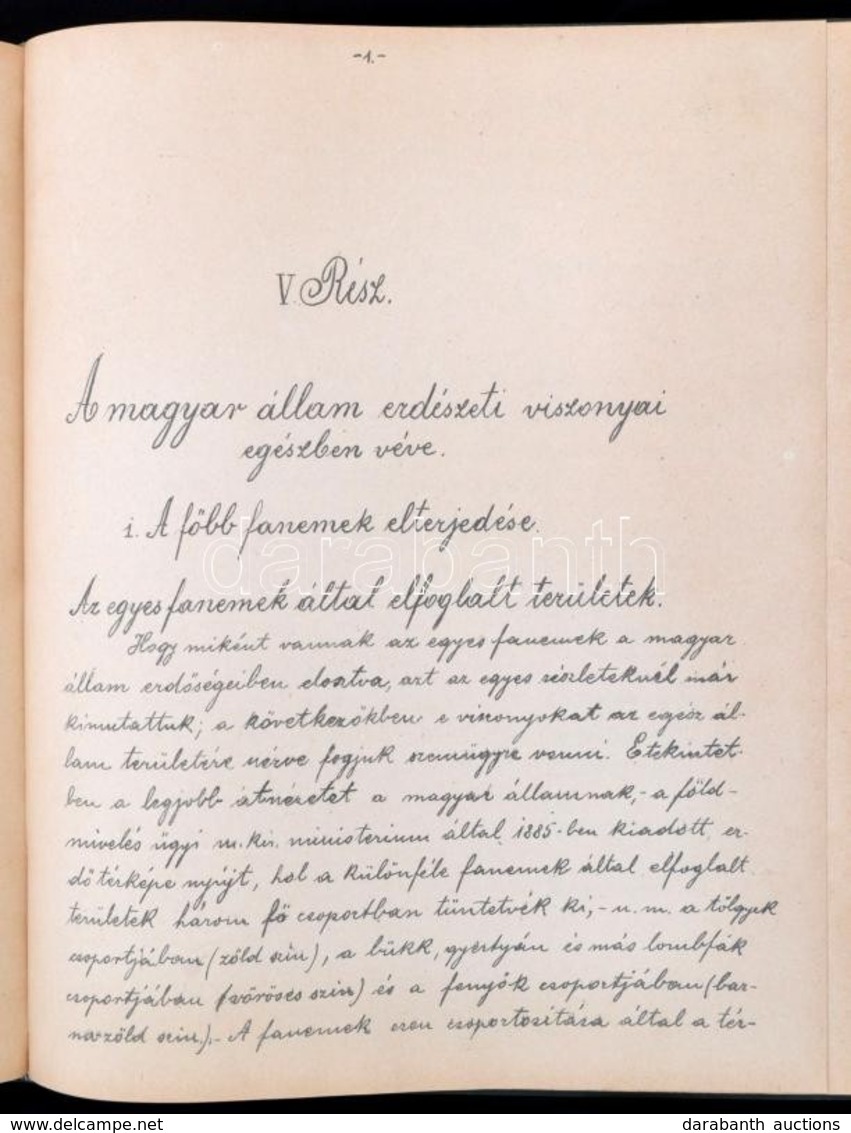 -1.-
V. Rész.
A magyar állam erdészeti viszonyai
egészben véve.
1. A főbb fanemek elterjedése.
darabanth
Az egyes fanemek által elfoglalt területek.
Hogy miként vannak az egyes fanemek a magyar
állam erdőségeiben elosztva, azt az egyes részleteknél már
kimutattuk; a következőkben e viszonyokat az egész ál-
lam területére nézve fogjuk szemügyre venni. E tekintet-
ben a legjobb átnézetet a magyar államnak,- a föld-
mivelés ügyi m. kir. ministerium által 1885-ben kiadott er-
dőtérképe nyújt, hol a különféle fanemek által elfoglalt
területek három fő csoportban tüntetvék ki,- u. m. a tölgyek
csoportjában (zöld szin), a bükk, gyertyán és más lombfák
csoportjában (vöröses szin) és a fenyők csoportjában (bar-
nazöld szin).- A fanemek ezen csoportosítása által a tér-
delcampe.net
darabanth auctions